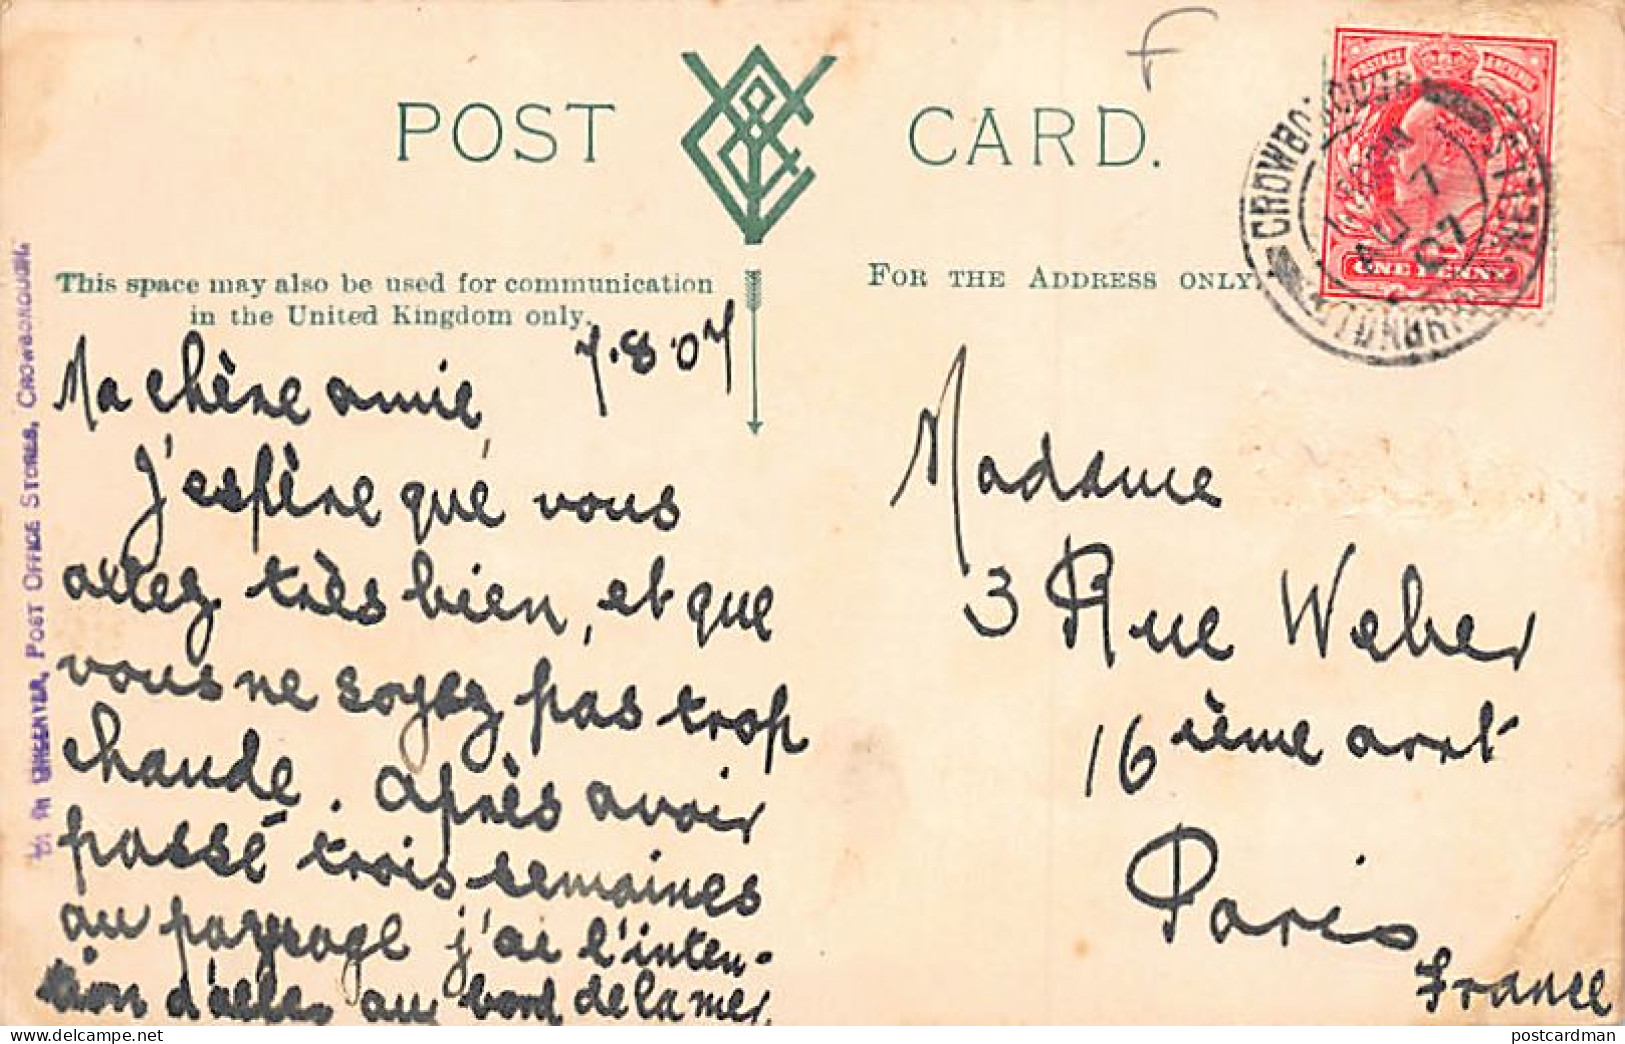 F
POST CARD.
This space may also be used for communication
in the United Kingdom only.
FOR THE ADDRESS ONLY.
POSTAGE REVENUE
ONE PENNY
CROWBOROUGH
TUNBRIDGE WELLS
AU 7
07
POST OFFICE STORES, CROWBOROUGH.
7.8.07
Ma chère amie,
J'espère que vous
allez très bien, et que
vous ne soyez pas trop
chaude. Après avoir
passé trois semaines
au paysage j'ai l'inten-
tion d'aller au bord de la mer
Madame
3 Rue Weber
16 ième arrt
Paris
France
postcardman